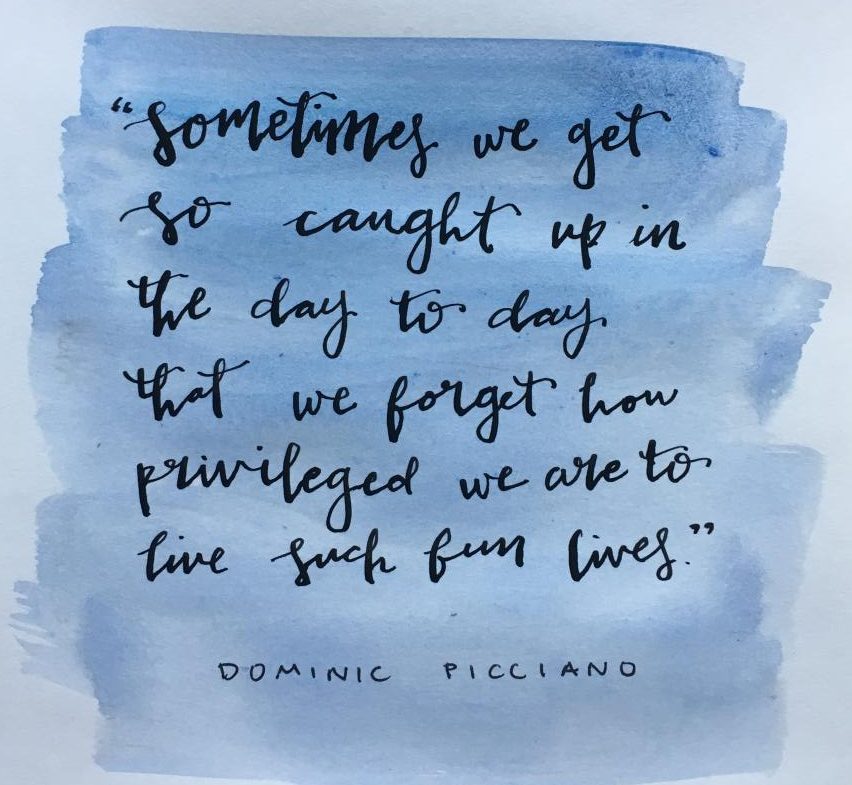 “sometimes we get
so caught up in
the day to day
that we forget how
privileged we are to
live such fun lives.”
DOMINIC PICCIANO